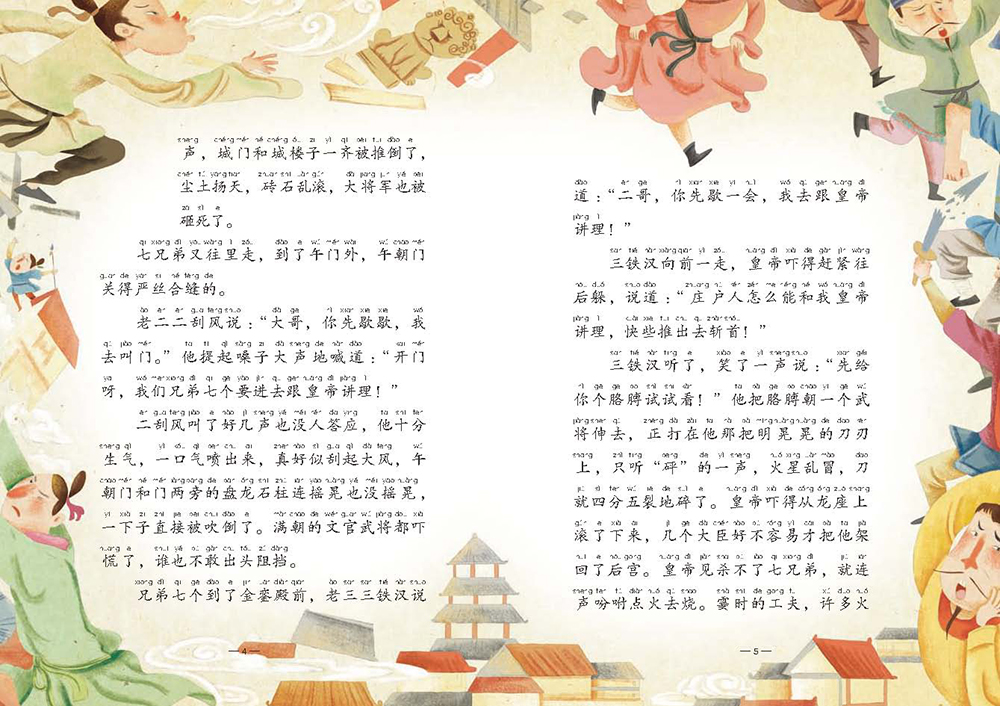 声，城门和城楼子一齐被推倒了，
尘土扬天，砖石乱滚，大将军也被
砸死了。
七兄弟又往里走，到了午门外，午朝门
关得严丝合缝的。
老二二刮风说：“大哥，你先歇歇，我
去叫门。”他提起嗓子大声地喊道：“开门
呀，我们兄弟七个要进去跟皇帝讲理！”
二刮风叫了好几声也没人答应，他十分
生气，一口气喷出来，真好似刮起大风，午
朝门和门两旁的盘龙石柱连摇晃也没摇晃，
一下子直接被吹倒了。满朝的文官武将都吓
慌了，谁也不敢出头阻挡。
兄弟七个到了金銮殿前，老三三铁汉说
—4—
道：“二哥，你先歇一会，我去跟皇帝
讲理！”
三铁汉向前一走，皇帝吓得赶紧往
后躲，说道：“庄户人怎么能和我皇帝
讲理，快些推出去斩首！”
三铁汉听了，笑了一声说：“先给
你个胳膊试试看！”他把胳膊朝一个武
将伸去，正打在他那把明晃晃的刀刃
上，只听“砰”的一声，火星乱冒，刀
就四分五裂地碎了。皇帝吓得从龙座上
滚了下来，几个大臣好不容易才把他架
回了后宫。皇帝见杀不了七兄弟，就连
声吩咐点火去烧。霎时的工夫，许多火
—5—